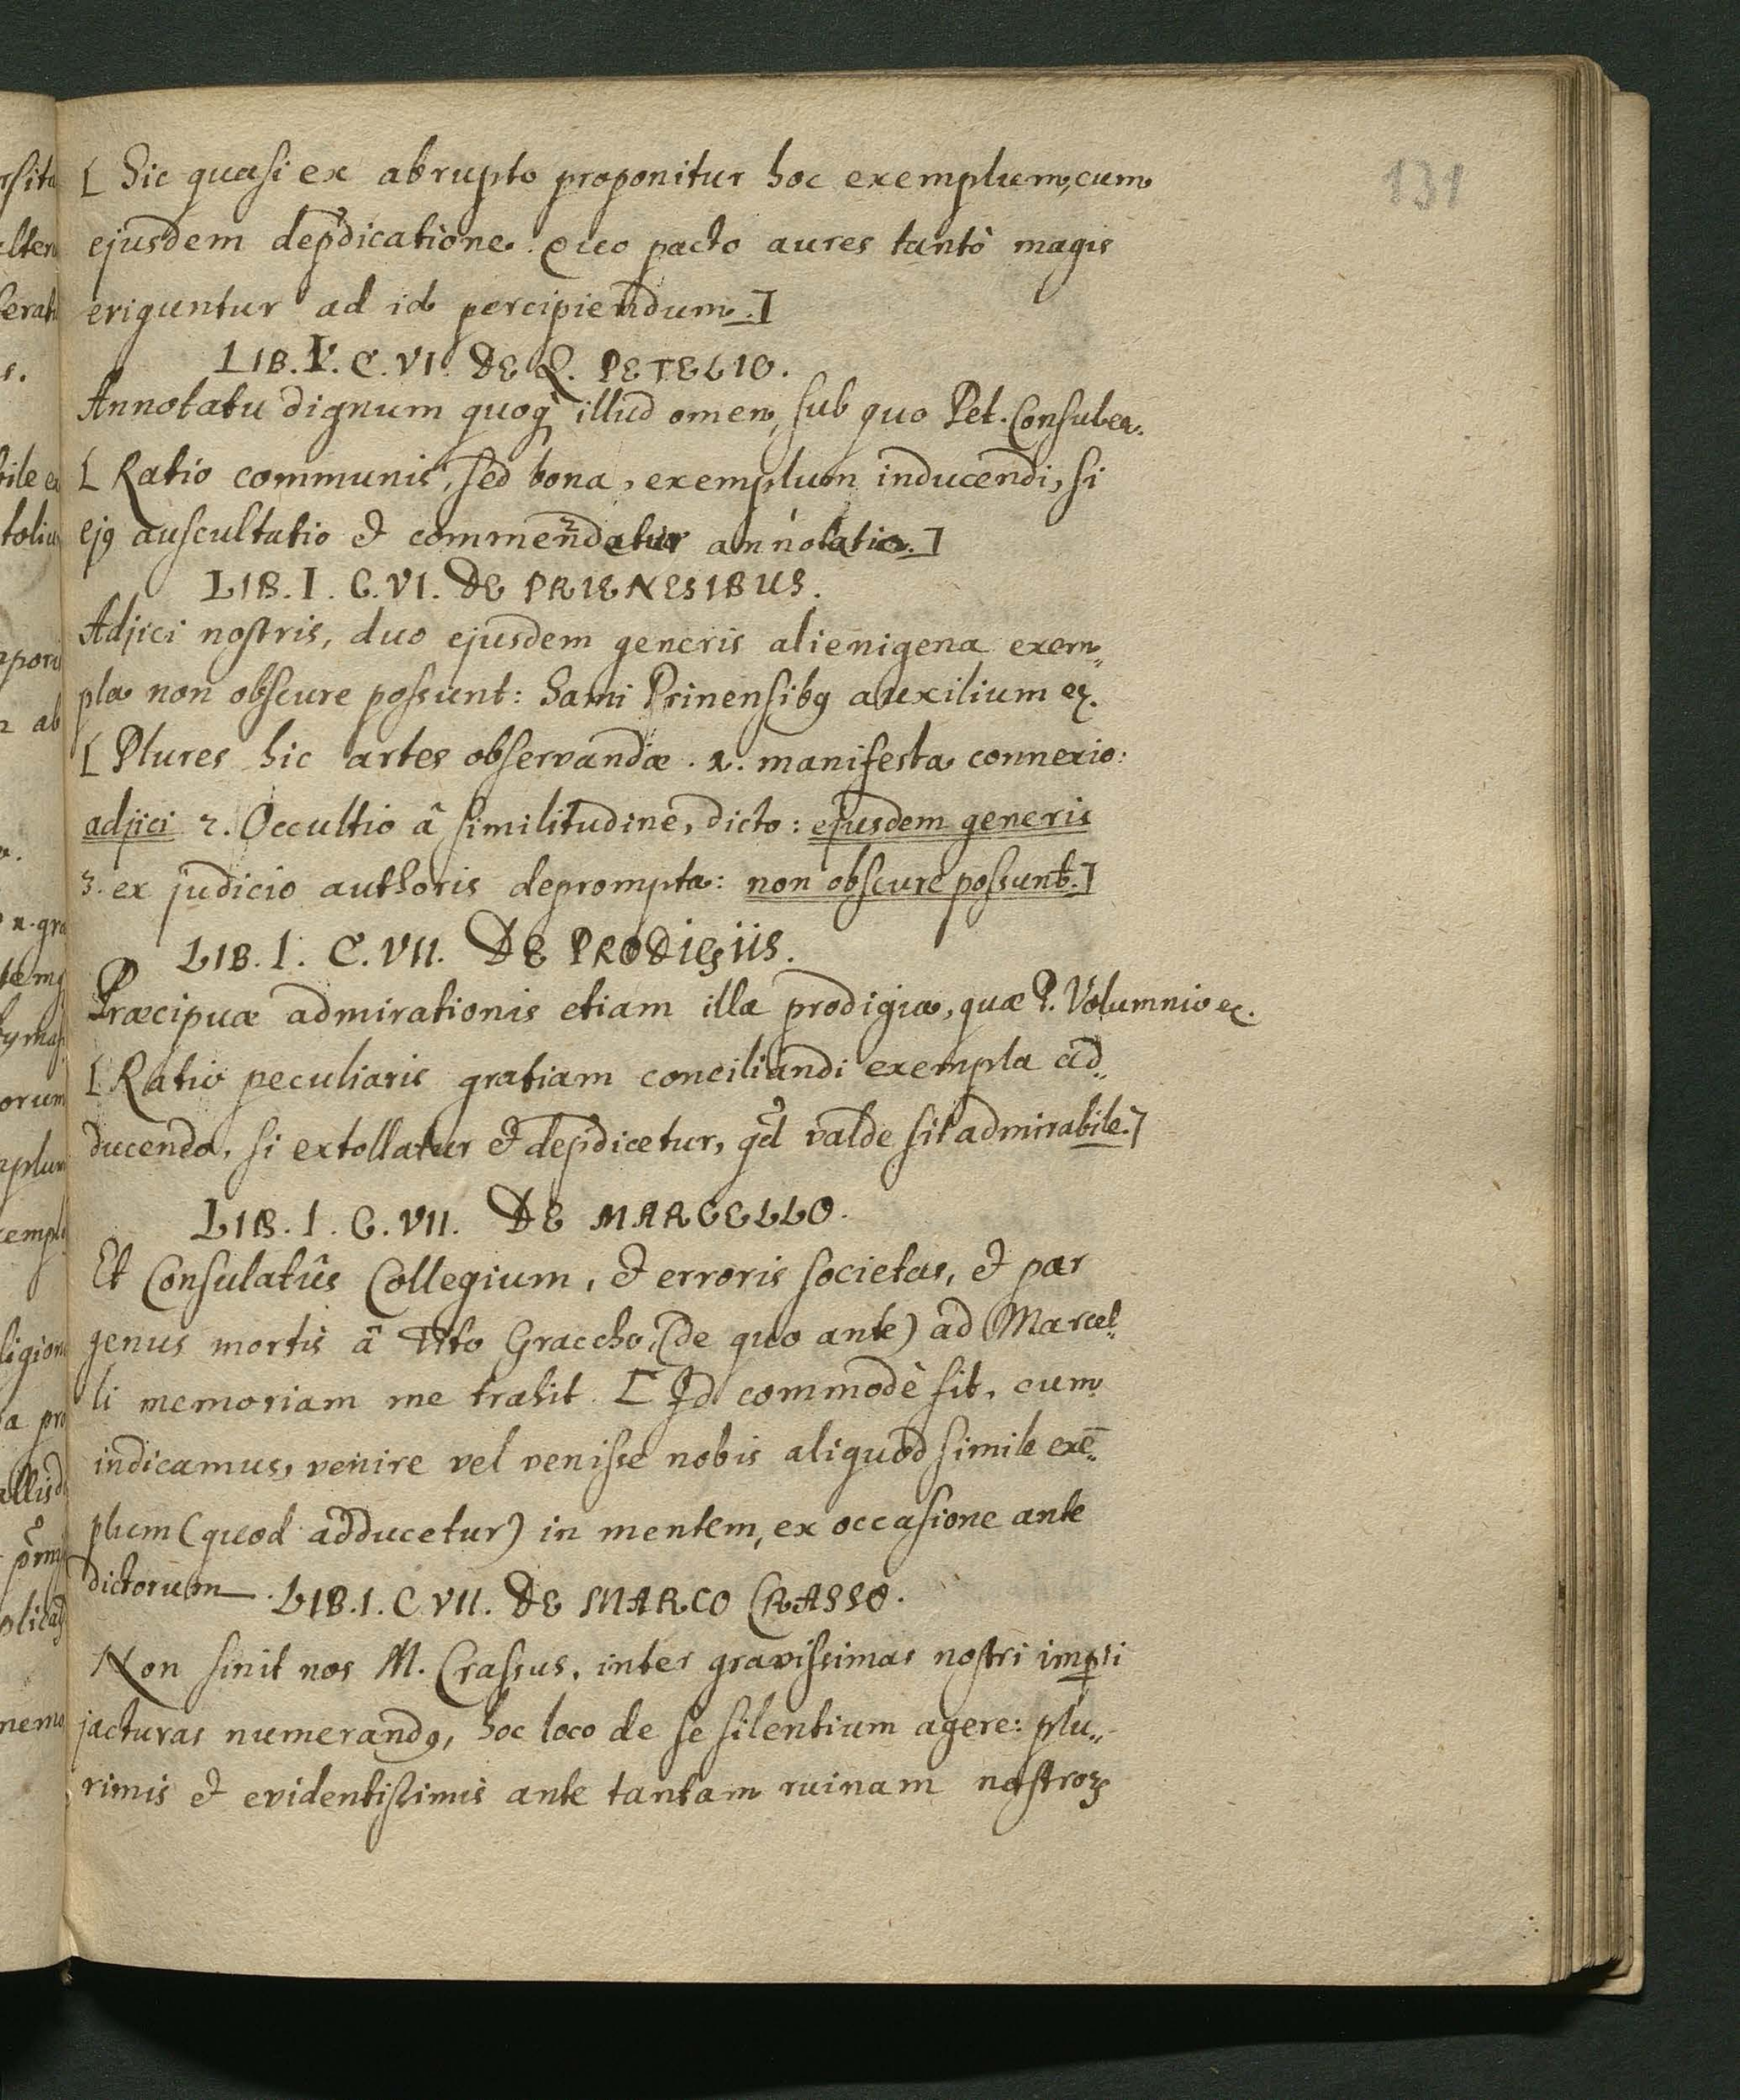 131
[ Hic quasi ex abrupto proponitur hoc exemplum, cum
ejusdem depdicatione. Quo pacto aures tantò magis
eriguntur ad id percipiendum.]
LIB. V. C. VI. DE Q. PETELIO.
Annotatu dignum quoq illud omen, sub quo Pet. Consul ec.
[ Ratio communis, sed bona, exemplum inducendi, si
ejꝯ auscultatio et commendatur annotatio.]
LIB. I. C. VI. DE PRIENESIBUS.
Adjici nostris, duo ejusdem generis alienigena exem„
pla non obscure possunt: Sami Prinensibꝯ auxilium ec.
[ Plures hic artes observandæ. 1. manifesta connexio:
adjici 2. Occultio â similitudine, dicto: ejusdem generis
3. ex judicio authoris deprompta: non obscure possunt.]
LIB. I. C. VII. DE PRODIGIIS.
Præcipuæ admirationis etiam illa prodigia, quæ P. Volumnio ec.
[ Ratio peculiaris gratiam conciliandi exempla ad„
ducendo, si extollatur et depdicetur, qd valde sit admirabile.]
LIB. I. C. VII. DE MARCELLO.
Et Consulatûs Collegium, et erroris societas, et par
genus mortis â Tito Graccho, (de quo ante) ad Marcel„
li memoriam me trahit. [ Id commodè fit, cum
indicamus, venire vel venisse nobis aliquod simile exē„
plum (quod adducetur) in mentem, ex occasione ante
dictorum
LIB. I. C VII. DE MARCO CRASSO.
Non sinit nos M. Crassus, inter gravissimas nostri impꝑi
jacturas numerandꝯ, hoc loco de se silentium agere: plu„
rimis et evidentissimis ante tantam ruinam nostroꝝ